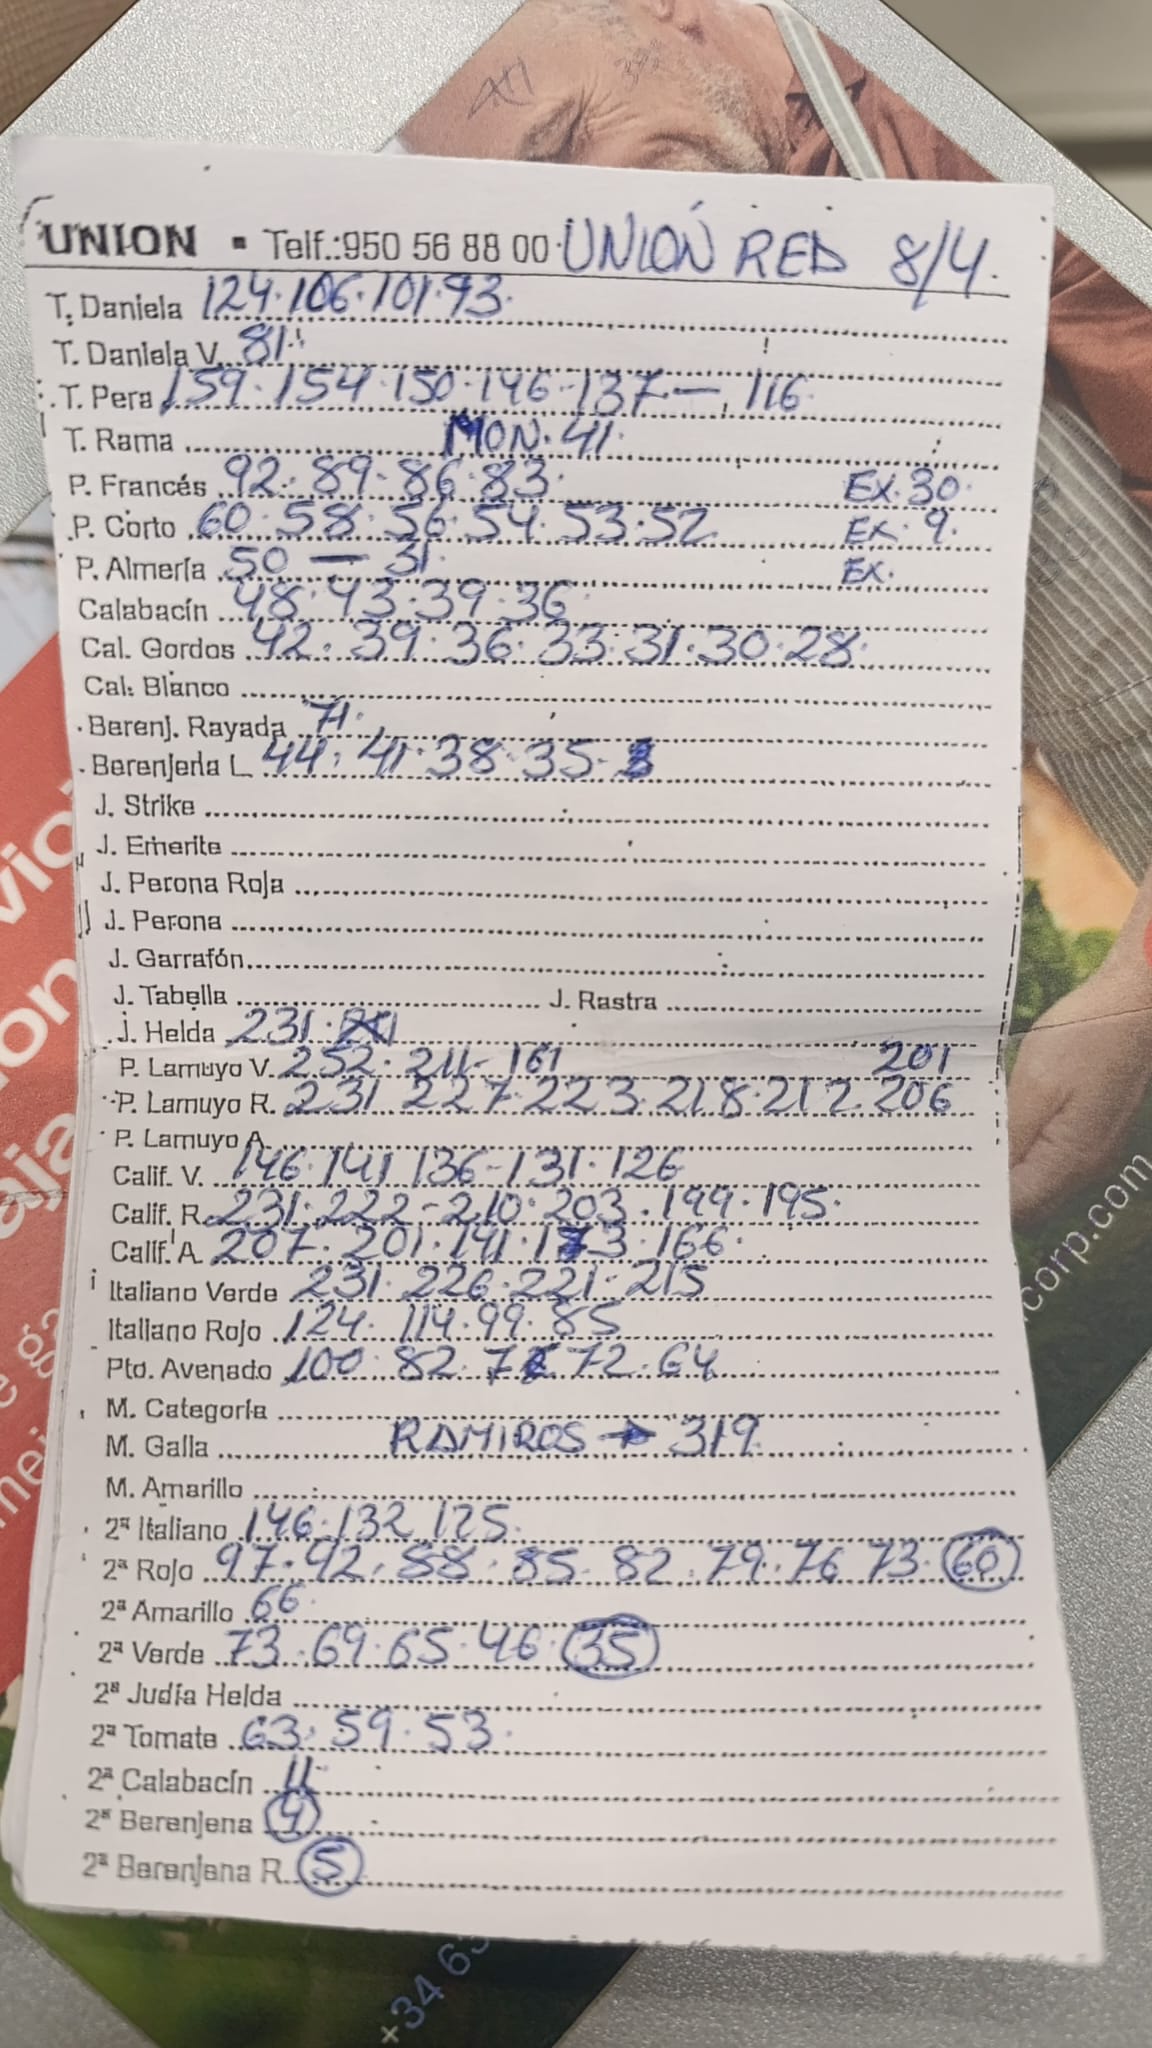 UNION ▪ Telf.:950 56 88 00 UNIÓN RED 8/4.
T. Daniela 124.106.101.93.
T. Daniela V. 81.
T. Pera 159.154.150.146.137.— 116.
T. Rama MON. 41.
P. Francés 92.89.86.83. Ex. 30.
P. Corto 60.58.56.54.53.52. Ex. 9.
P. Almería 50 — 31. Ex.
Calabacín 48.43.39.36
Cal. Gordos 42.39.36.33.31.30.28.
Cal. Blanco
Berenj. Rayada 71.
Berenjena L. 44.41.38.35.
J. Strike
J. Emerite
J. Perona Roja
J. Perona
J. Garrafón
J. Tabella J. Rastra
J. Helda 231.
P. Lamuyo V. 252.211-161 201
P. Lamuyo R. 231.227.223.218.212.206
P. Lamuyo A.
Calif. V. 146.141 136-131.126
Calif. R. 231.222-210.203.199.195.
Calif. A. 207.201.191.183.166.
Italiano Verde 231.226.221-215
Italiano Rojo 124.114.99.85
Pto. Avenado 100.82. 72.64
M. Categoría
M. Galla RAMIROS → 319
M. Amarillo
2ª Italiano 146.132 125.
2ª Rojo 97.92.88.85.82.79.76 73.60
2ª Amarillo 66.
2ª Verde 73.69.65.46.35
2ª Judía Helda
2ª Tomate 63.59.53.
2ª Calabacín 11
2ª Berenjena
2ª Berenjena R. 5
corp.com
+34 63